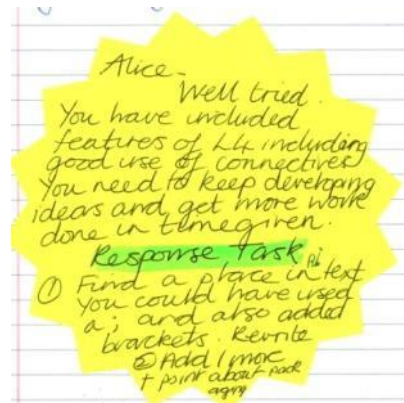 Alice -
Well tried.
You have included
features of L4 including
good use of connectives
You need to keep developing
ideas and get more work
done in time given.
Response Task :
① Find a place in text
you could have used
a ; and also added
brackets. Rewrite
② Add 1 more
+ point about pack
aging